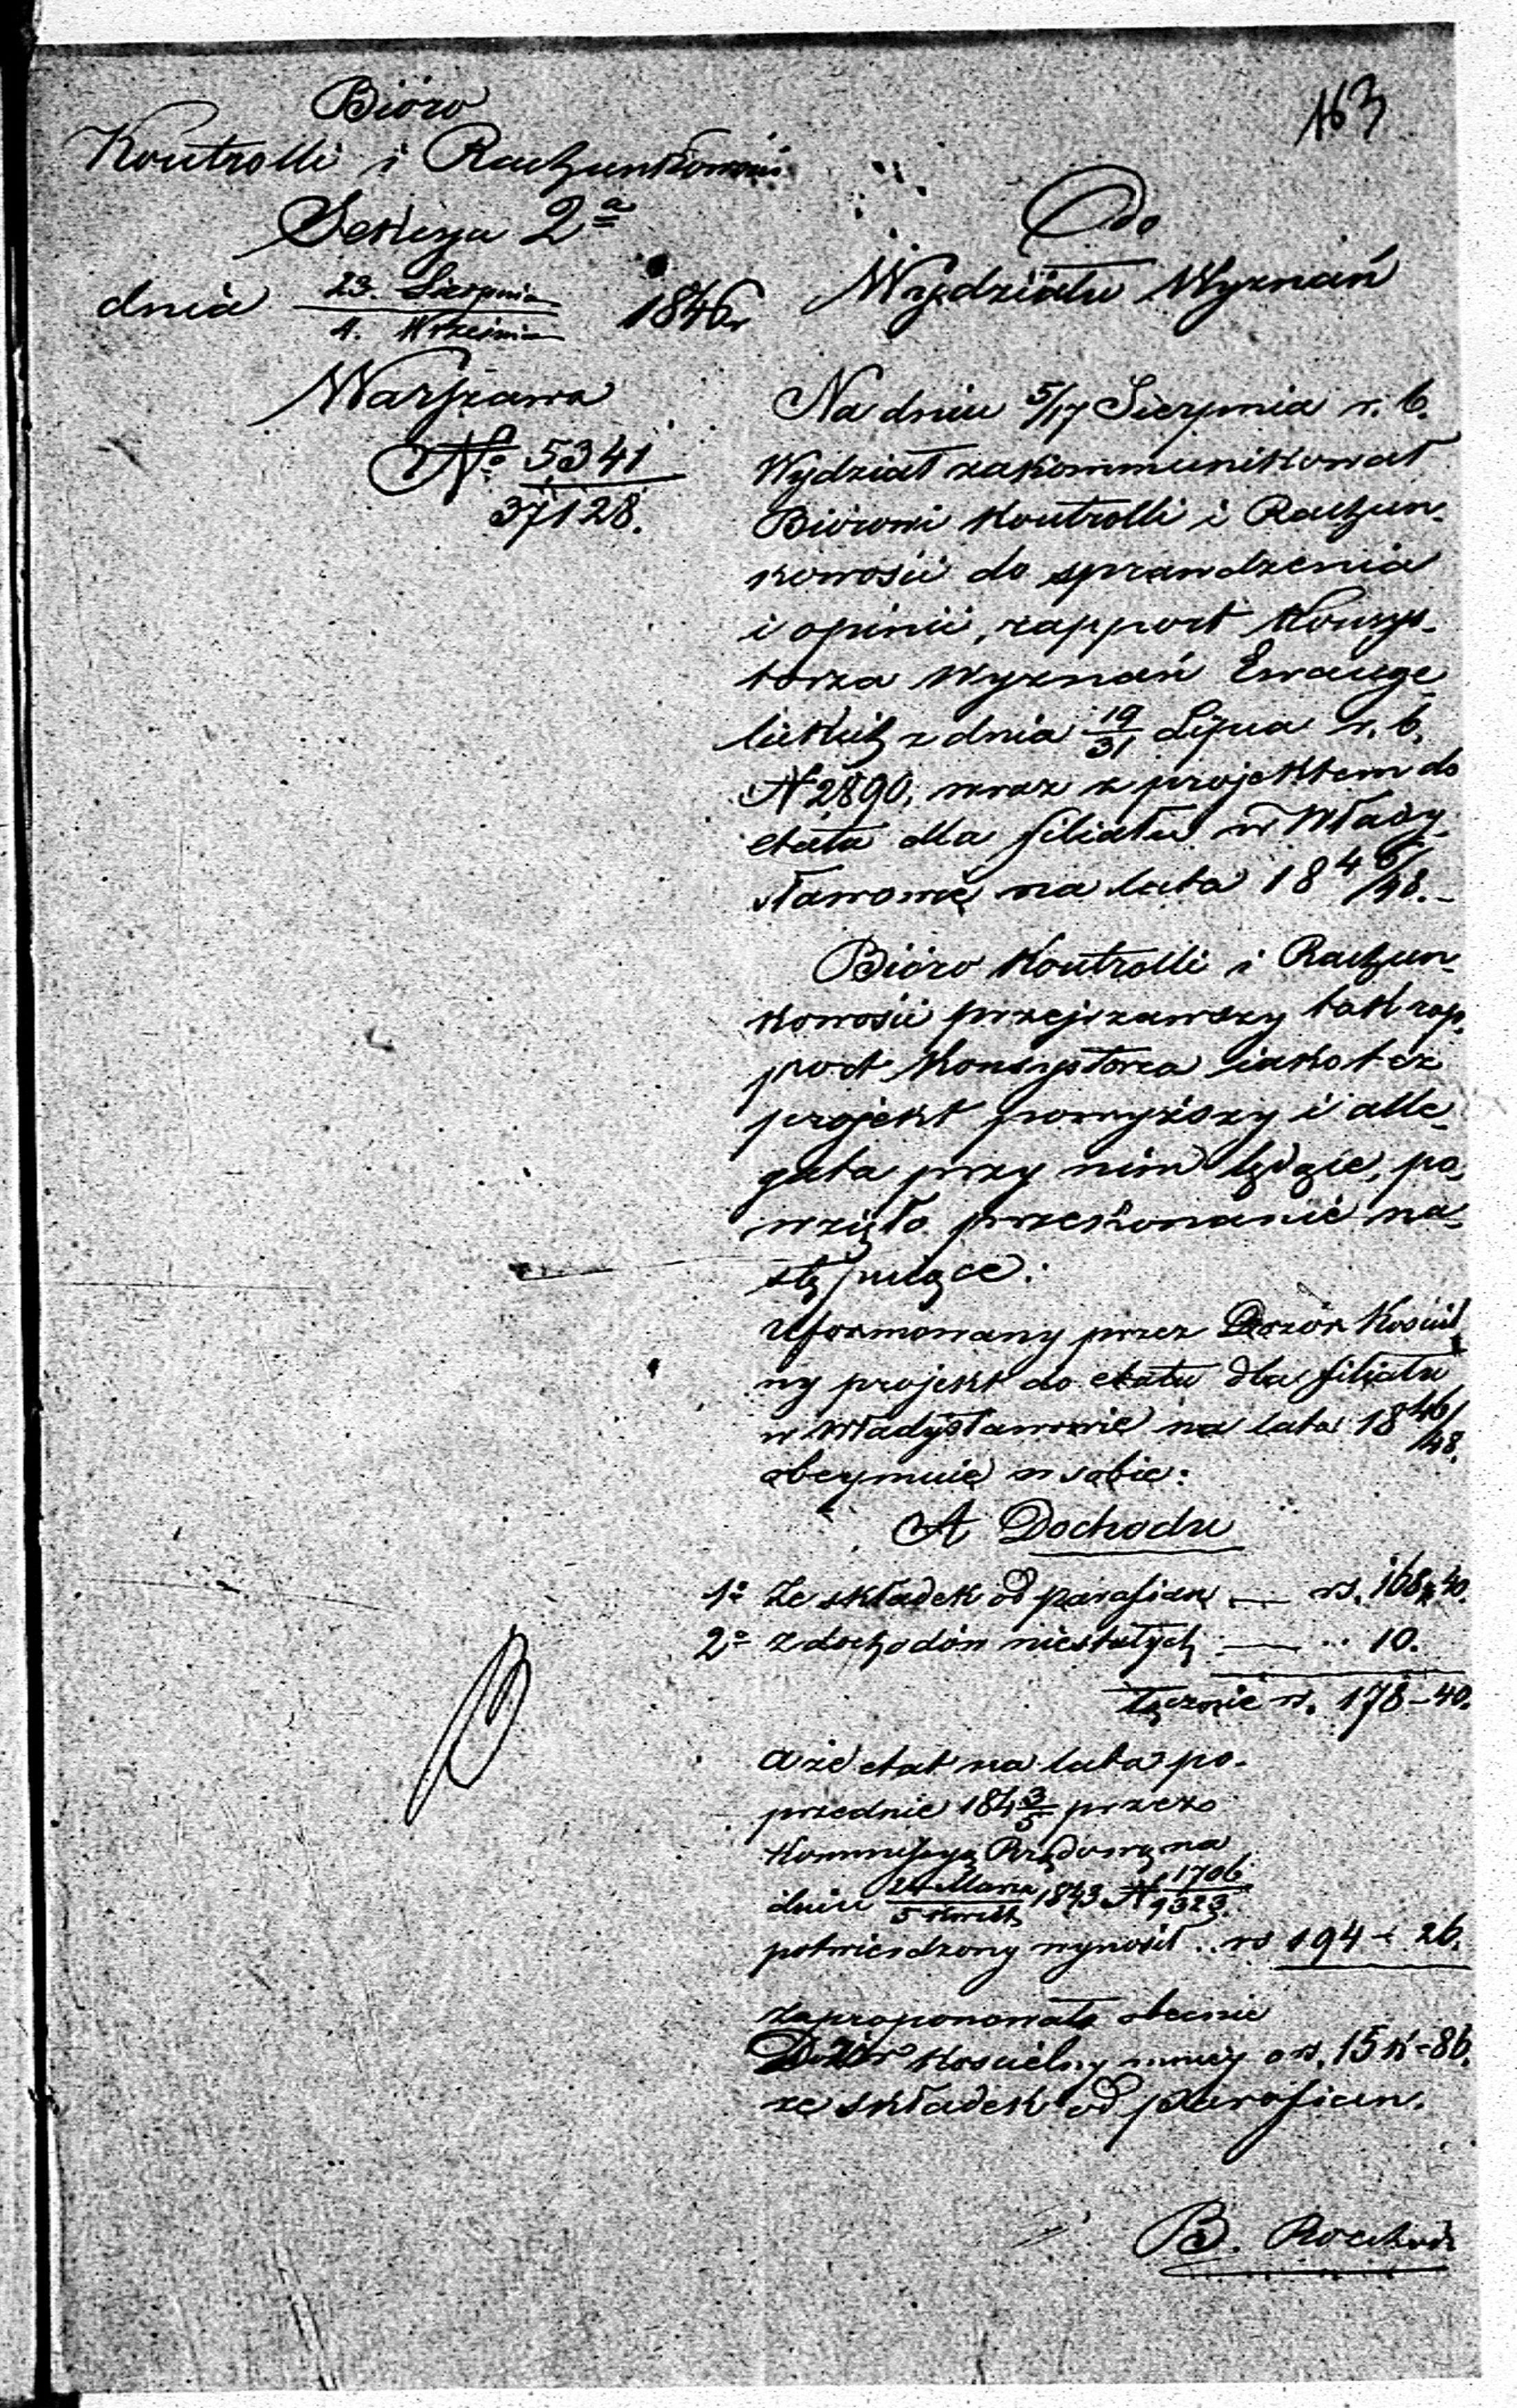 163
Bióro
Kontrolli i Rachunkowości
Sekcya 2ª
dnia 23. Sierpnia / 4. Września 1846 r
Warszawa
No 5341 / 37128.
Do
Wydziału Wyznań
Na dniu 5/17 Sierpnia r. b.
Wydział zakommunikował
Biórowi Kontrolli i Rachun-
kowości do sprawdzenia
i opinii, rapport Konsys-
torza Wyznań Ewange-
lickich z dnia 19/31 Lipca r. b.
N 2890, wraz z projektem do
etatu dla filiału w Włady-
sławowie na lata 1846/48.-
Bióro Kontrolli i Rachun-
kowości przejrzawszy tak rap-
port Konsystorza iako też
projekt powyższy i alle-
gata przy nim będące, po-
wzięło przekonanie na-
stępuiące:
Uformowany przez Dozór Kościel
ny projekt do etatu dla filiału
w Władysławowie na lata 1846/48.
obeymuie w sobie:
A Dochodu
1º Ze składek od parafian — rs. 168 k 40.
2º z dochodów niestałych — .. 10.
Łącznie rs. 178 - 40.
a że etat na lata po-
przednie 184 3/5 przez
Kommissyą Rządową na
dniu 24 Marca / 5 Kwiet 1843 N 1706 / 9323
potwierdzony wynosił .. rs 194 - 26.
zaproponował obecnie
Dozór Kościelny mniey o rs. 15 k - 86.
ze składek od parafian.
B.